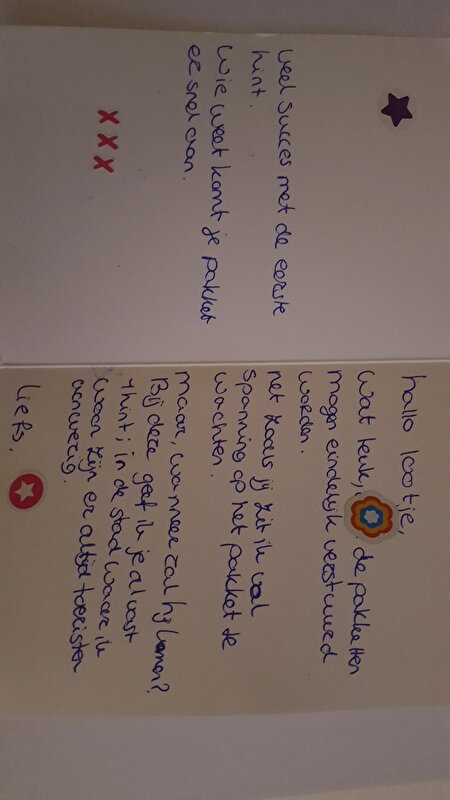 hallo lootje,
wat leuk, de pakketten
mogen eindelijk verstuurd
worden.
net zoals jij zit ik vol
spanning op het pakket te
wachten.
maar, wanneer zal hij komen?
Bij deze geef ik je al vast
1 hint; in de stad waar ik
woon zijn er altijd toeristen
aanwezig.
Liefs,
veel succes met de eerste
hint.
Wie weet komt je pakket
er snel aan.
x x x